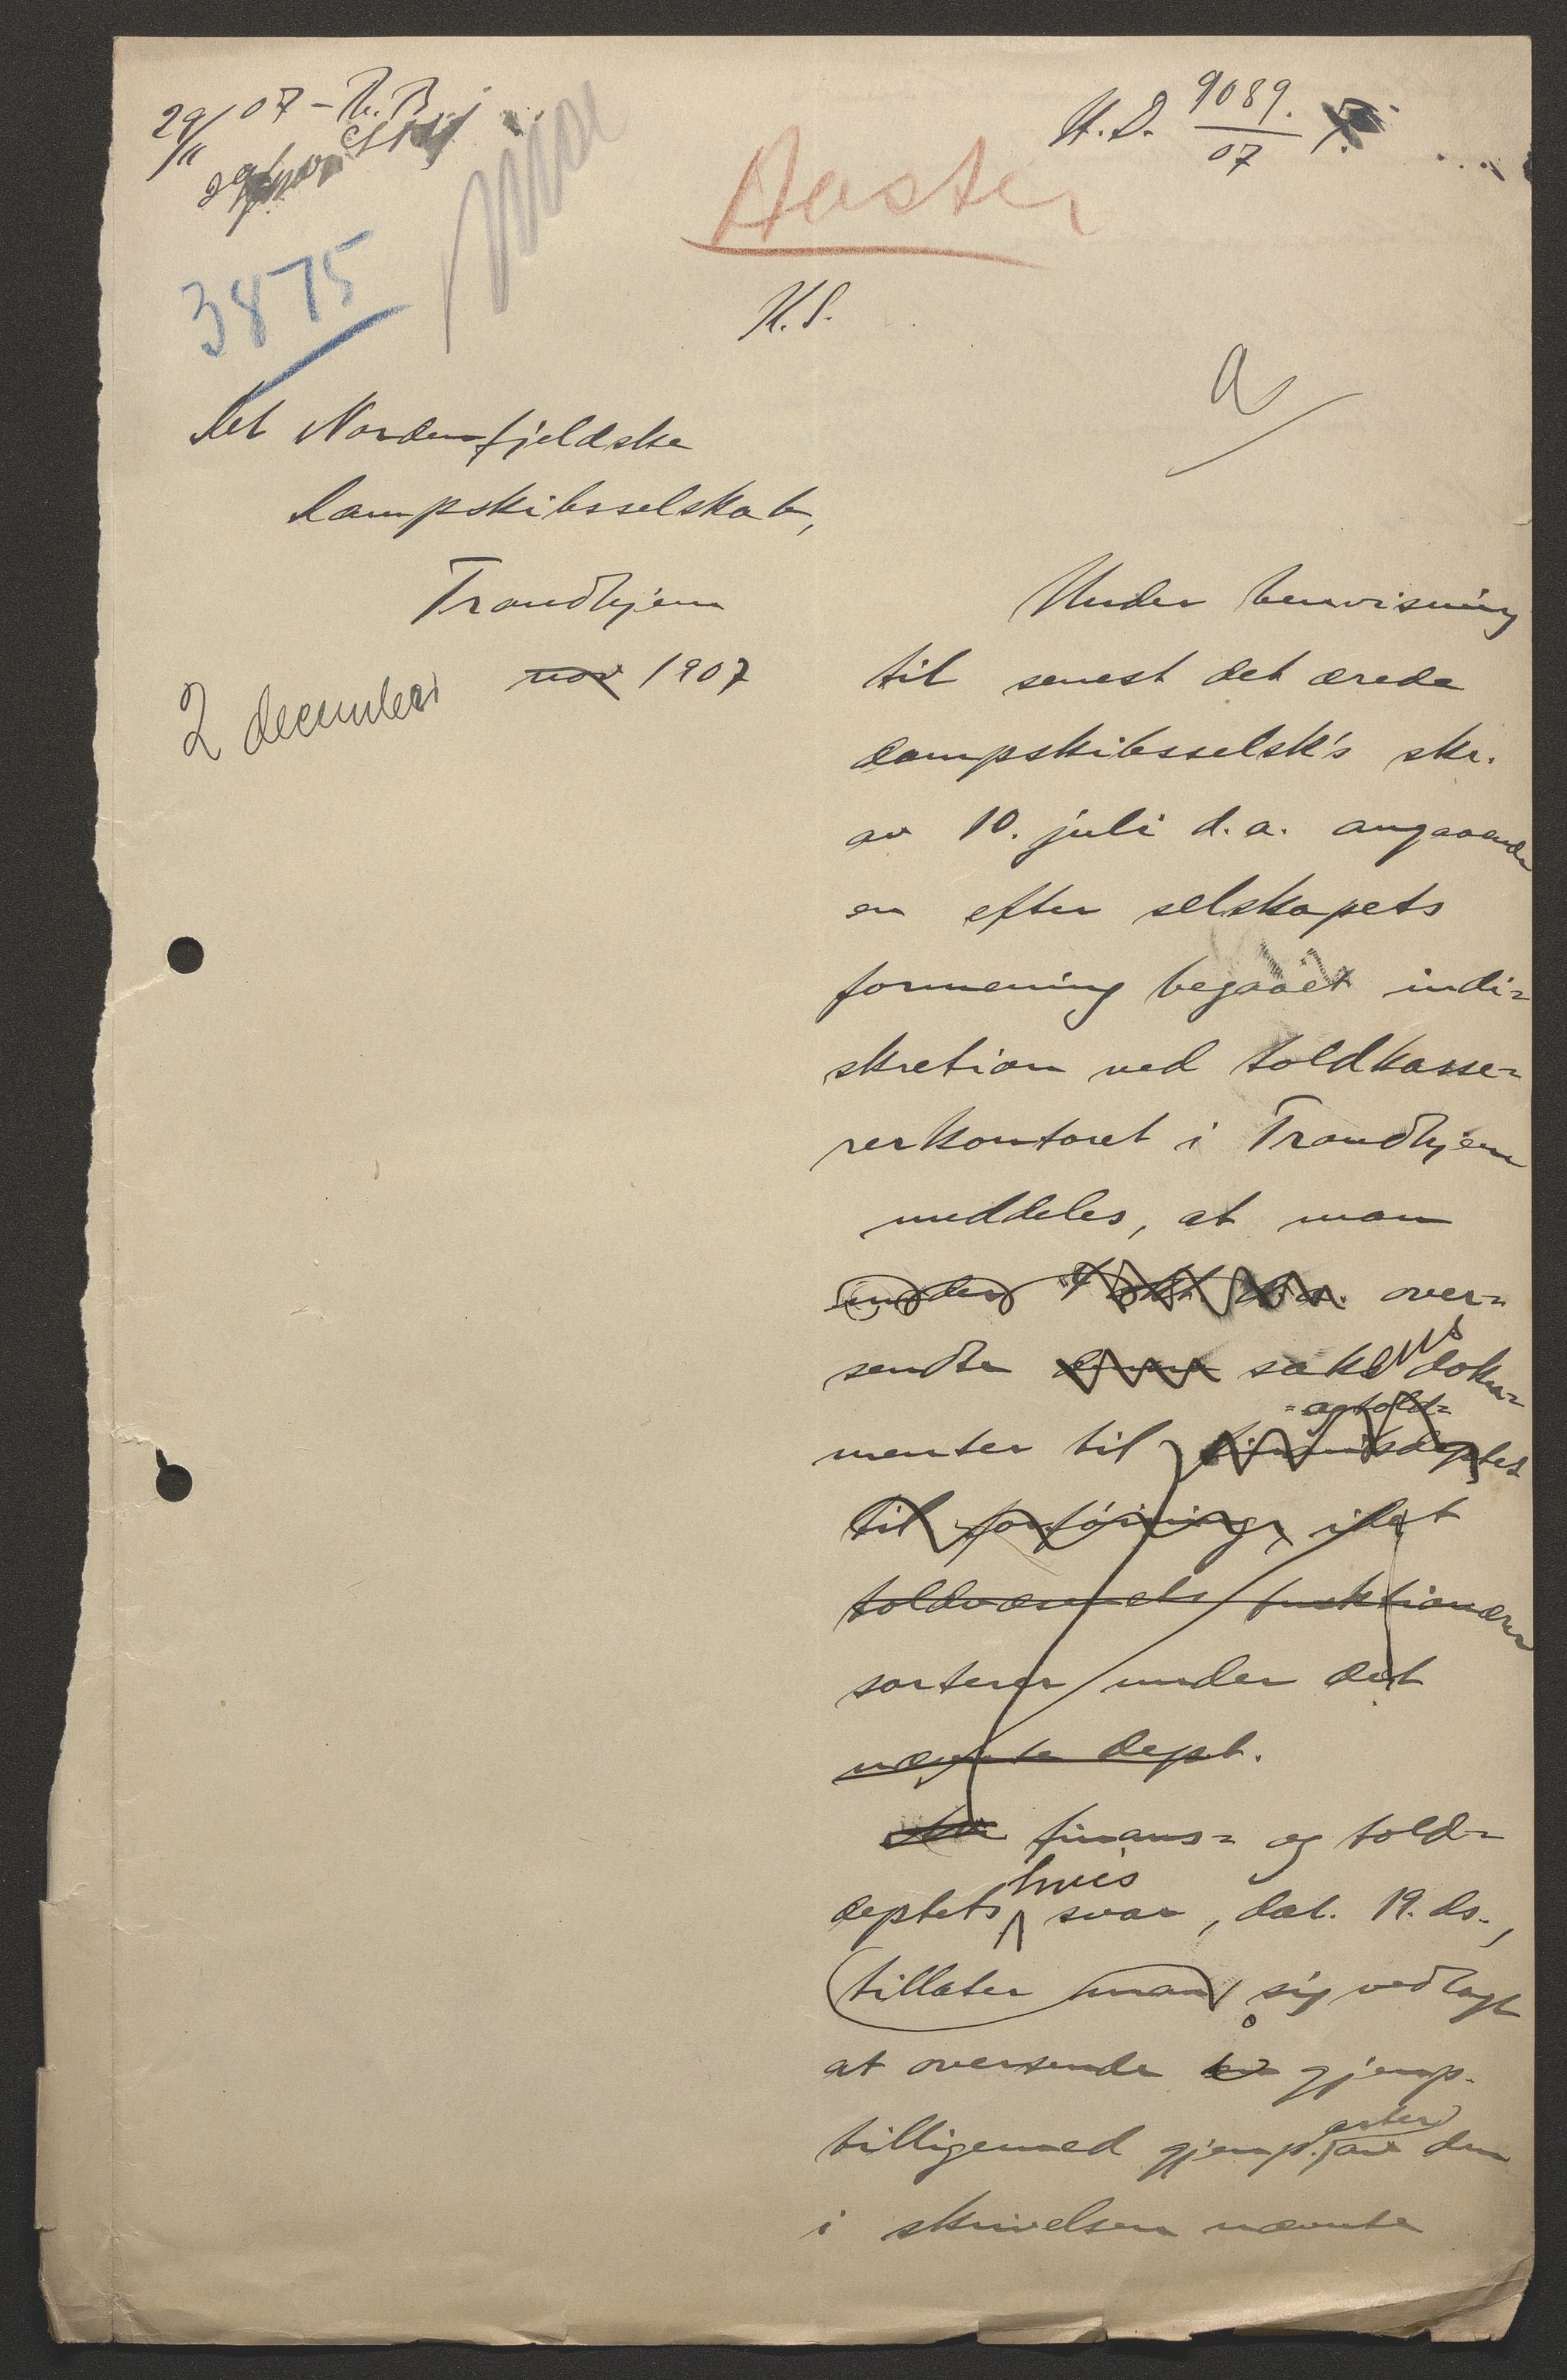 29/11 07 – 
H.D. 9089./07
Haster
3875
K.S.
a
Det Nordenfjeldske
Dampskibsselskab,
Trondhjem
nov 1907
2 december
Under henvisning
til senest det ærede
dampskibsselsk's skr.
av 10. juli d.a. angaaende
en efter selskapets
formening begaaet indi=
skretion ved toldkasse=
rerkontoret i Trondhjem
meddeles, at man
under over=
sendte sakens doku=
menter til finansdeptet
=og told=
til forføining, idet
toldvæsenets funktionærer
sorterer under det
nævnte dept.
finans= og told=
deptets hvis svar, dat. 19. ds.,
tillater man sig vedlagt
at oversende i gjenp.
tilligemed gjenp. av den
i skrivelsen nævnte